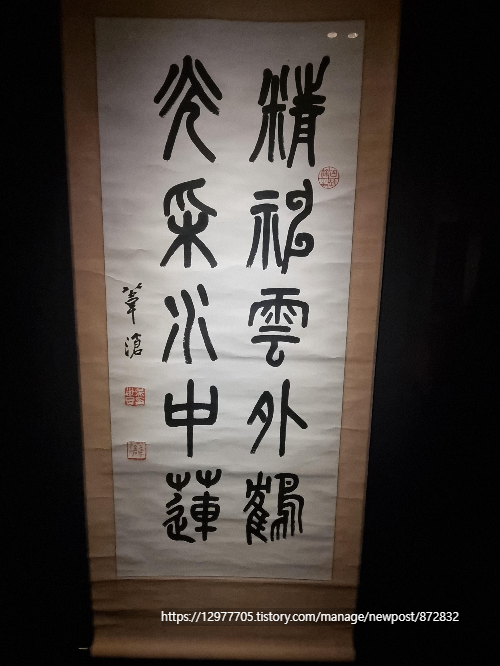 精神雲外鶴
光采水中蓮
葦滄
https://12977705.tistory.com/manage/newpost/872832